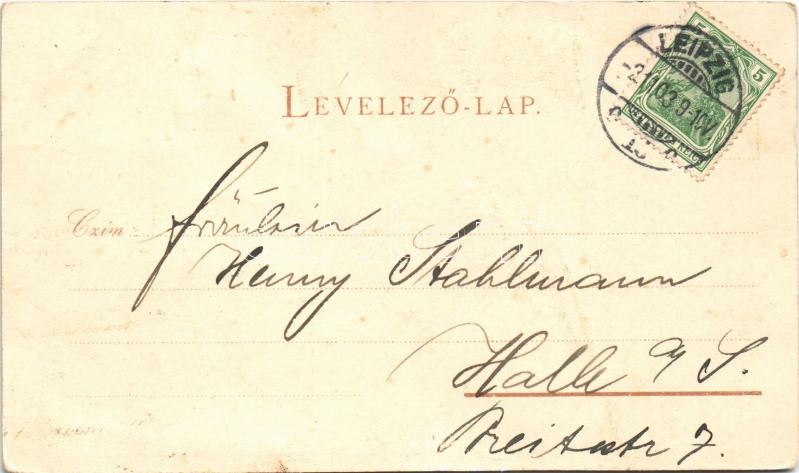 LEVELEZŐ-LAP.
5
LEIPZIG
03 9-10V.
13
Czim
Fräulein
Henny Stahlmann
Halle a/S.
Breitestr 7.